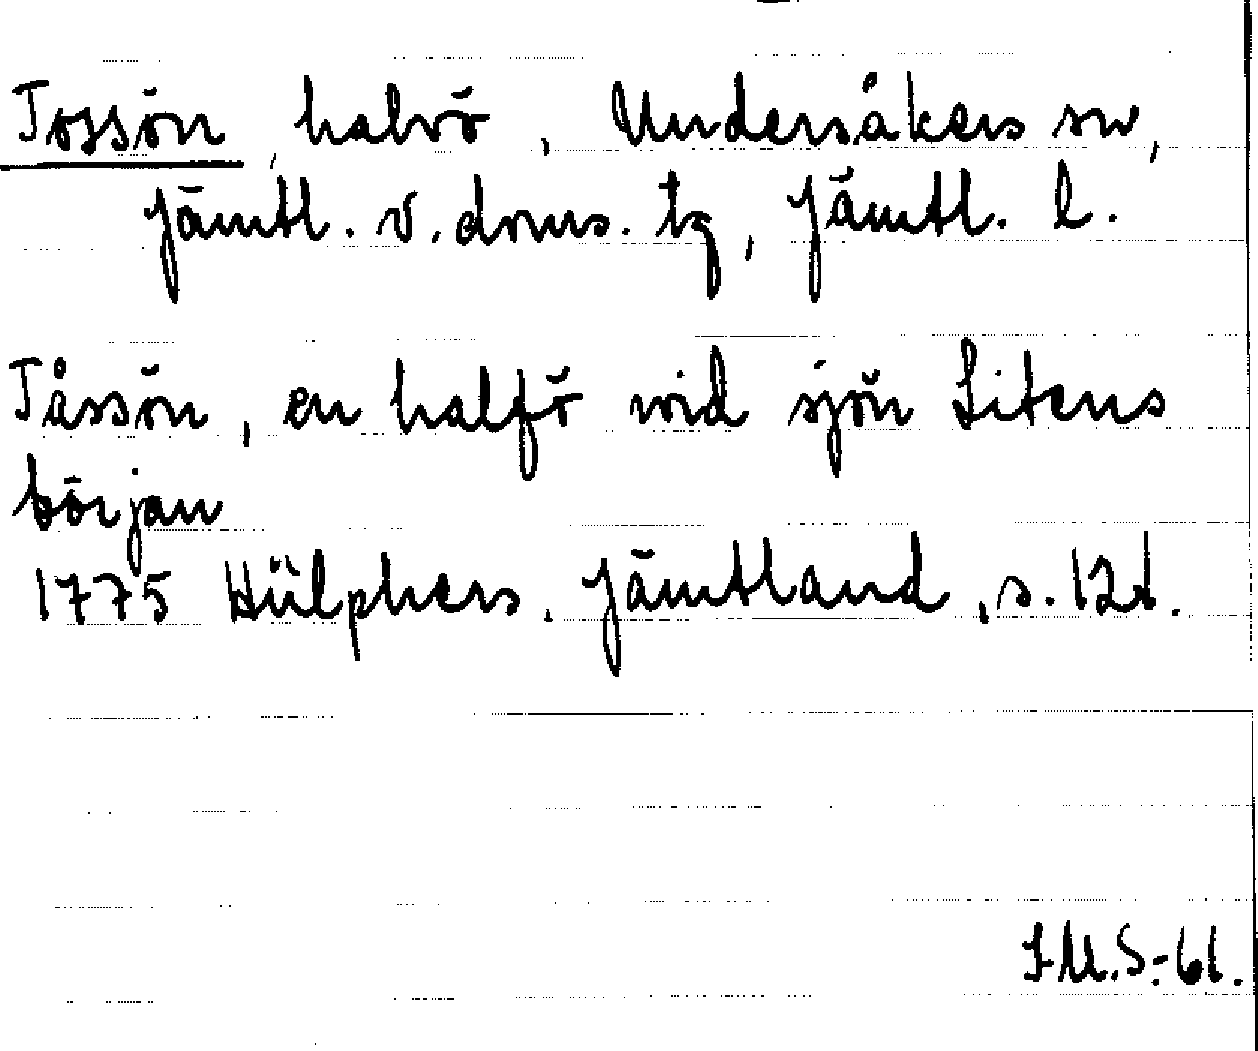 Tossön, halvö, Undersåkers sn,
Jämtl. v. doms. tg, Jämtl. l.
Tåssön, en halfö wid sjön Litens
början
1775 Hülphers. Jämtland, s. 121.
I-M.S.-61.